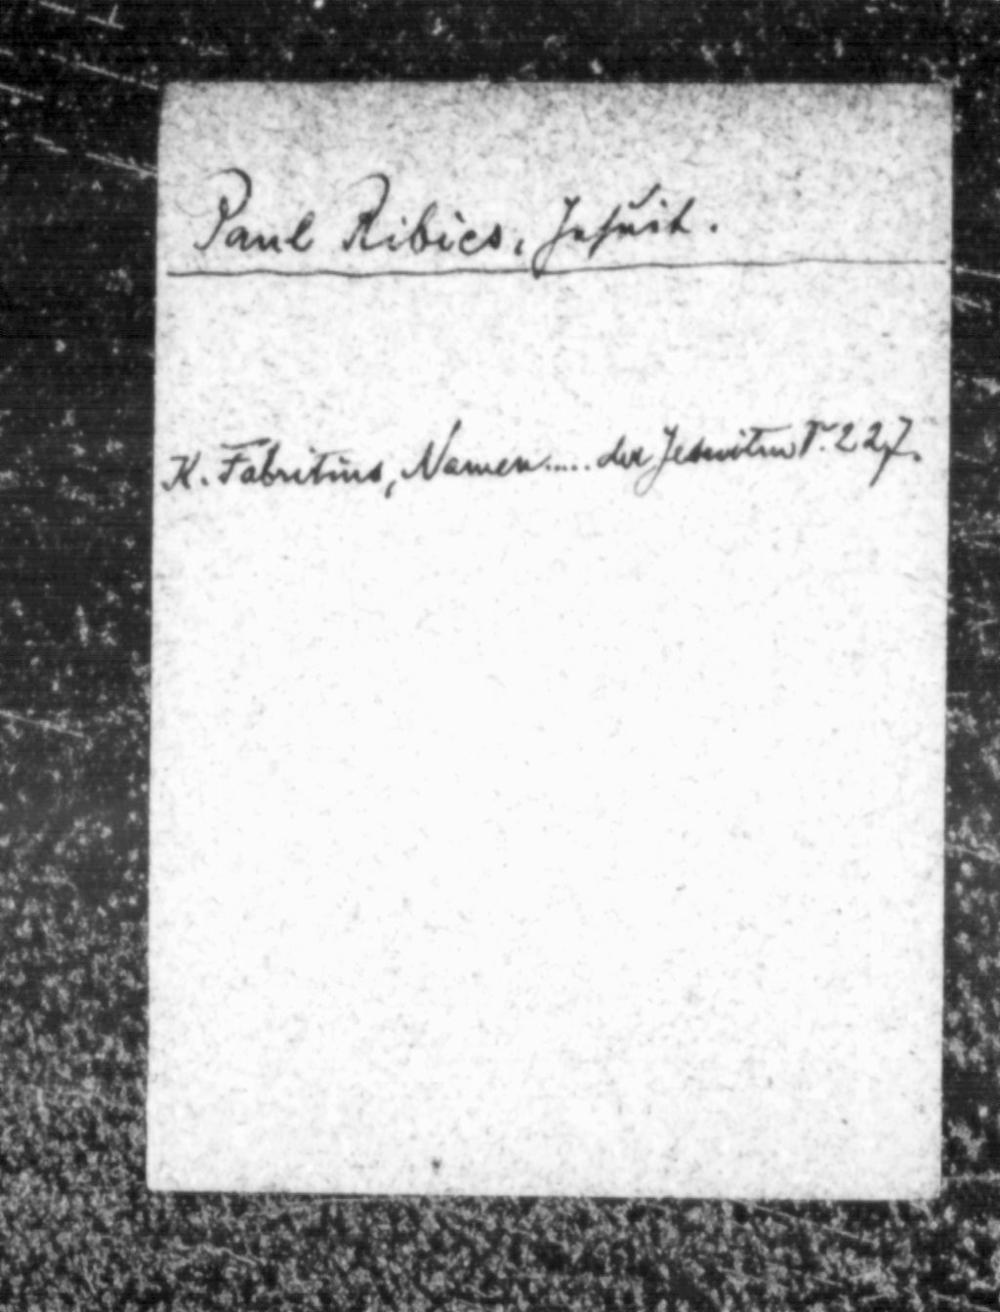 Paul Ribics, Jesuit.
K. Fabritius, Namen..... der Jesuiten P. 227.